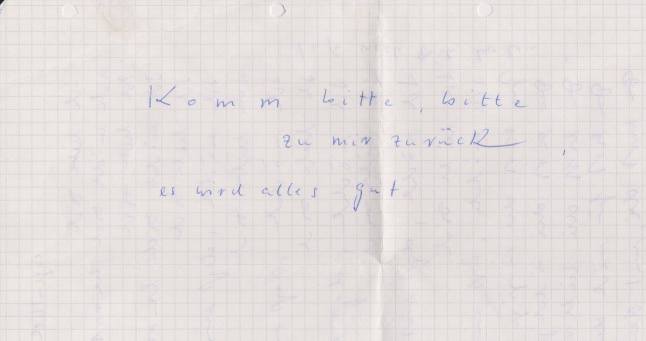 Komm bitte, bitte
zu mir zurück,
es wird alles gut